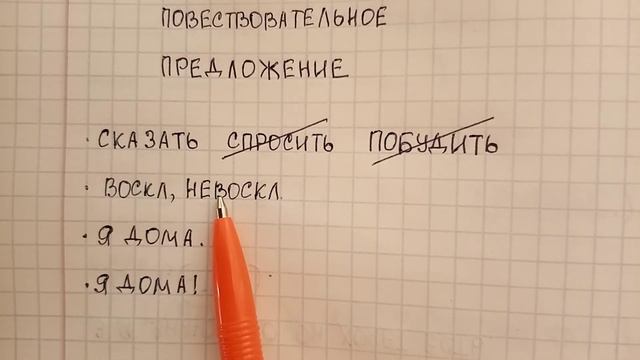 ПОВЕСТВОВАТЕЛЬНОЕ
ПРЕДЛОЖЕНИЕ
· СКАЗАТЬ СПРОСИТЬ ПОБУДИТЬ
· ВОСКЛ, НЕВОСКЛ.
· Я ДОМА.
· Я ДОМА!